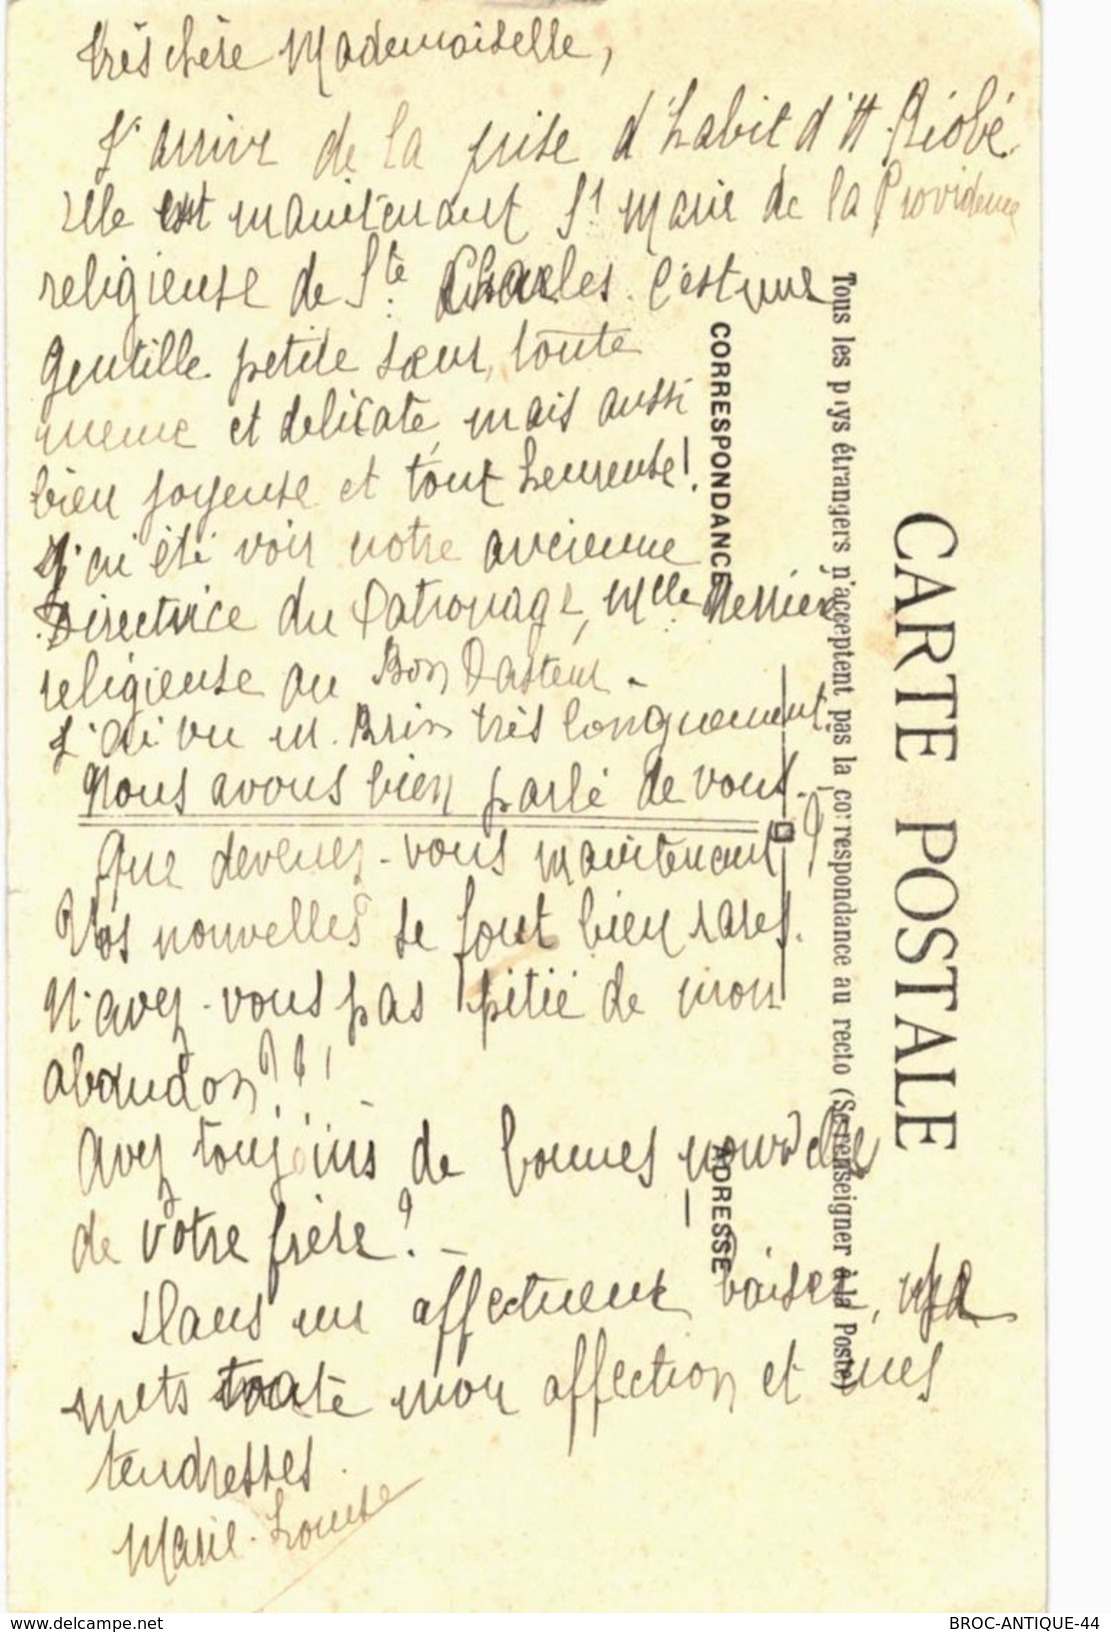 Très chère Mademoiselle,
J'arrive de la prise d'habit d'H. Riobé.
Elle est maintenant Sr Marie de la Providence
religieuse de Ste Charles. C'est une
gentille petite sœur, toute
menue et délicate, mais aussi
bien joyeuse et tout heureuse!
J'ai été voir notre ancienne
Directrice du Patronage, Mlle
religieuse au Bon Pasteur -
J'ai vu M. Brin très longuement.
Nous avons bien parlé de vous.
Que devenez-vous maintenant?
Vos nouvelles se font bien rares.
N'avez-vous pas pitié de mon
abandon??!
Avez toujours de bonnes nouvelles
de votre frère? -
Dans un affectueux baiser, je
mets toute mon affection et mes
tendresses.
Marie-Louise
CARTE POSTALE
Tous les pays étrangers n'acceptent pas la correspondance au recto (Se renseigner à la Poste)
CORRESPONDANCE
ADRESSE
www.delcampe.net
BROC-ANTIQUE-44